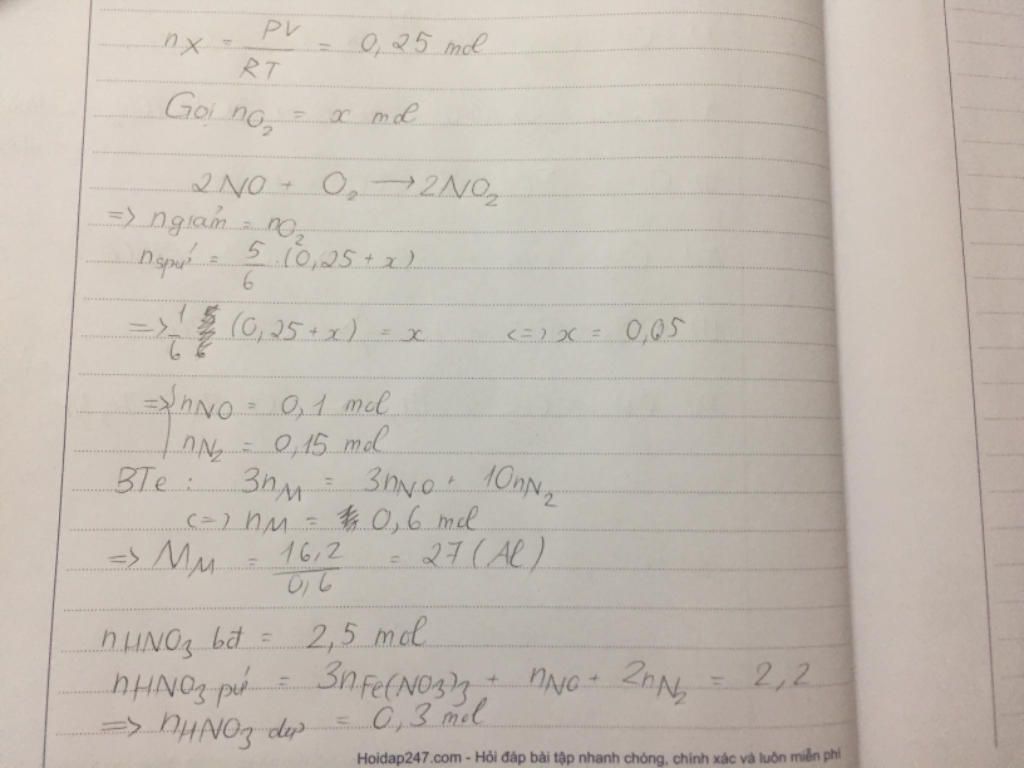 nX = PV/RT = 0,25 mol
Gọi nO2 = x mol
2NO + O2 → 2NO2
=> n giảm = nO2
nspứ = 5/6 . (0,25 + x)
=> 1/6 (0,25 + x) = x <=> x = 0,05
=> nNO = 0,1 mol
nN2 = 0,15 mol
BTe : 3nM = 3nNO + 10nN2
<=> nM = 0,6 mol
=> MM = 16,2/0,6 = 27 (Al)
nHNO3 bđ = 2,5 mol
nHNO3 pứ = 3nFe(NO3)3 + nNO + 2nN2 = 2,2
=> nHNO3 dư = 0,3 mol
Hoidap247.com - Hỏi đáp bài tập nhanh chóng, chính xác và luôn miễn phí